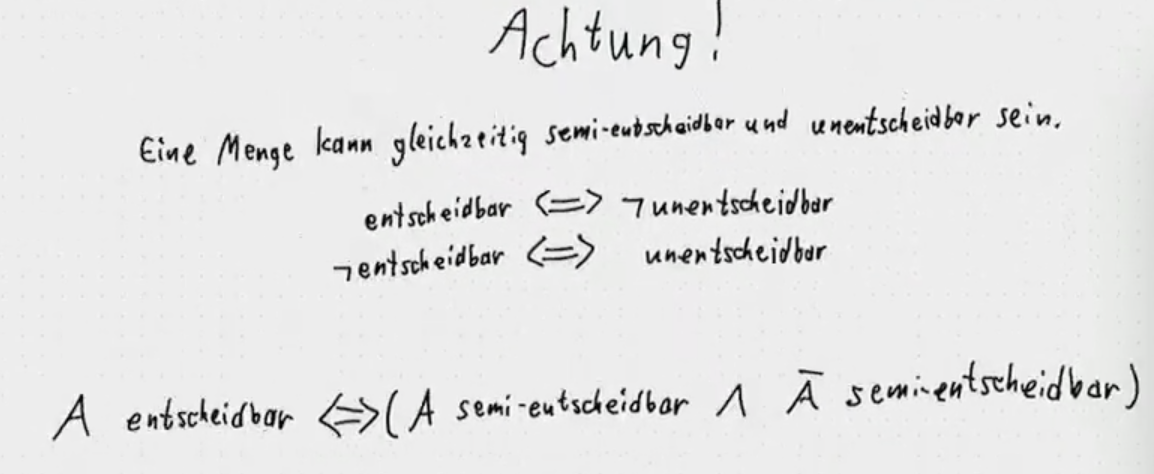 Achtung!
Eine Menge kann gleichzeitig semi-entscheidbar und unentscheidbar sein.
entscheidbar <=> ¬unentscheidbar
¬entscheidbar <=> unentscheidbar
A entscheidbar <=> (A semi-entscheidbar ∧ Ā semi-entscheidbar)